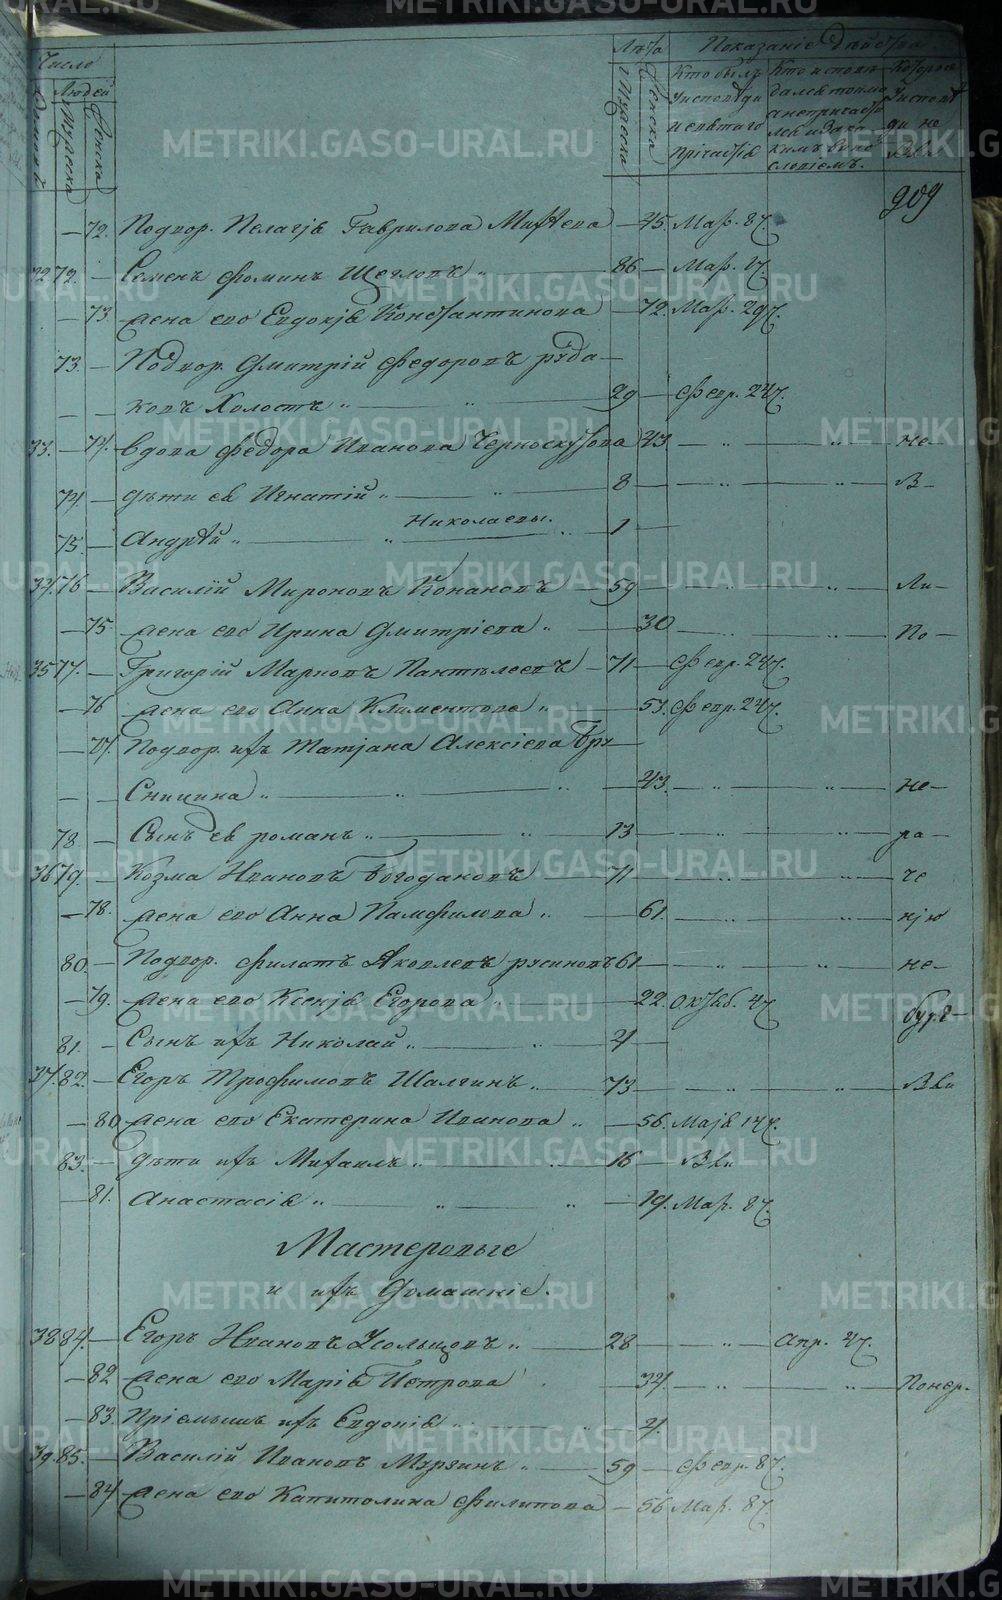 Число
Людей
Мужеска
Женска
Лѣта
Мужеска
Женска
Показаніе Дѣйства
Кто былъ
у исповѣди
и святаго
прічастія
Кто исповѣ
дался токмо
а не причасти
лся и за ка
кимъ вино
словіемъ.
Которые
у исповѣ
ди не
были
909
— 72. Подвор. Пелагія Гаврилова — 45. Мар. 8 ч.
32 72. — Семенъ Фоминъ Щегловъ „ — 86 — Мар.
— 73. жена его Евдокія Константинова — 72. Мар. 29 ч.
73. — Подвор. Дмитрій Федоровъ руда —
— — ковъ Холостъ „ — „ — 29 — Февр. 24 ч.
33. — 74. вдова Федора Иванова Черноскутова 43 — „ — „ — не
74 — дѣти ея Игнатій „ — „ — 8 — „ — „ — в —
Николаевы.
75 — Андрѣй „ — „ — „ 1 —
34 76 — Василій Мироновъ Конановъ — 59 — „ — „ — Ли —
— 75 жена его Ирина Дмитріева „ — 30 — „ — „ — По —
35 77. — Григорій Марковъ Пантѣлеевъ — 71 — Февр. 24 ч.
— 76 жена его Анна Климентова „ — 51. Февр. 24 ч.
— 77. Подвор. ихъ Татіана Алексіева Бру —
— — сницина „ — „ — „ — 43. — „ — „ — не —
78. — Сынъ ея романъ „ — „ — 13 — „ — „ — ра —
36 79. — Козма Ивановъ Богодановъ — 71 — „ — „ — че
— 78. жена его Анна Памфилова „ — 61. — „ — „ — нію
80. — Подвор. Филатъ Яковлевъ русиновъ 61 — „ — „ — не —
— 79. жена его Ксенія Егорова „ — 22. Октяб. 4 ч.
81. — Сынъ ихъ Николай „ — „ — 4 —
37. 82. — Егоръ Трофимовъ Шалгинъ „ — 73 — „ — „ —
— 80 жена его Екатерина Иванова „ — 56. Маія 14 ч.
83. — дѣти ихъ Михаилъ „ — „ — 16 —
— 81. Анастасія „ — „ — „ — 19. Мар. 8 ч.
Мастеровые
и ихъ Домашніе.
38 84. — Егоръ Ивановъ Усольцовъ „ — 28 — „ — Апр. 4 ч.
— 82 жена его Марія Петрова — 34. — „ — „ —
— 83. Пріемышъ ихъ Евдокія „ — „ — 4.
39. 85. — Василій Ивановъ Мурзинъ „ — 59 — Февр. 8 ч.
— 84 жена его Капитолина Филипова — 56 Мар. 8 ч.
METRIKI.GASO-URAL.RU